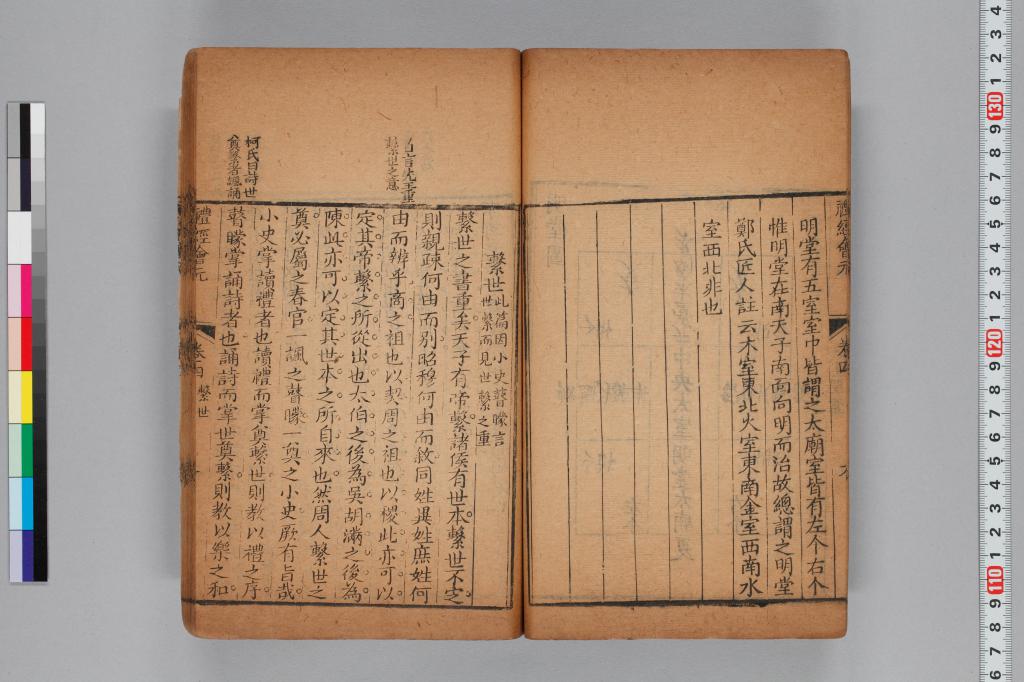 明堂有五室室中皆謂之太廟室皆有左个右个
惟明堂在南天子南面向明而治故總謂之明堂
鄭氏匠人註云木室東北火室東南金室西南水
室西北非也
禮經會元
卷四
繫世此篇因小史瞽矇言
世繫而見世繫之重
繫世之書重矣天子有帝繫諸侯有世本繫世不定
則親疎何由而別昭穆何由而敘同姓異姓庶姓何
由而辨乎商之祖也以契周之祖也以稷此亦可以
定其帝繫之所從出也太伯之後為吳胡滿之後為
陳此亦可以定其世本之所自來也然周人繫世之
奠必屬之春官一諷之瞽矇一奠之小史厥有旨哉
小史掌讀禮者也讀禮而掌奠繫世則教以禮之序
瞽矇掌誦詩者也誦詩而掌世奠繫則教以樂之和
言先王重
繫世之意
柯氏曰詩世
奠繫者諷誦
禮經會元
卷四 繫世